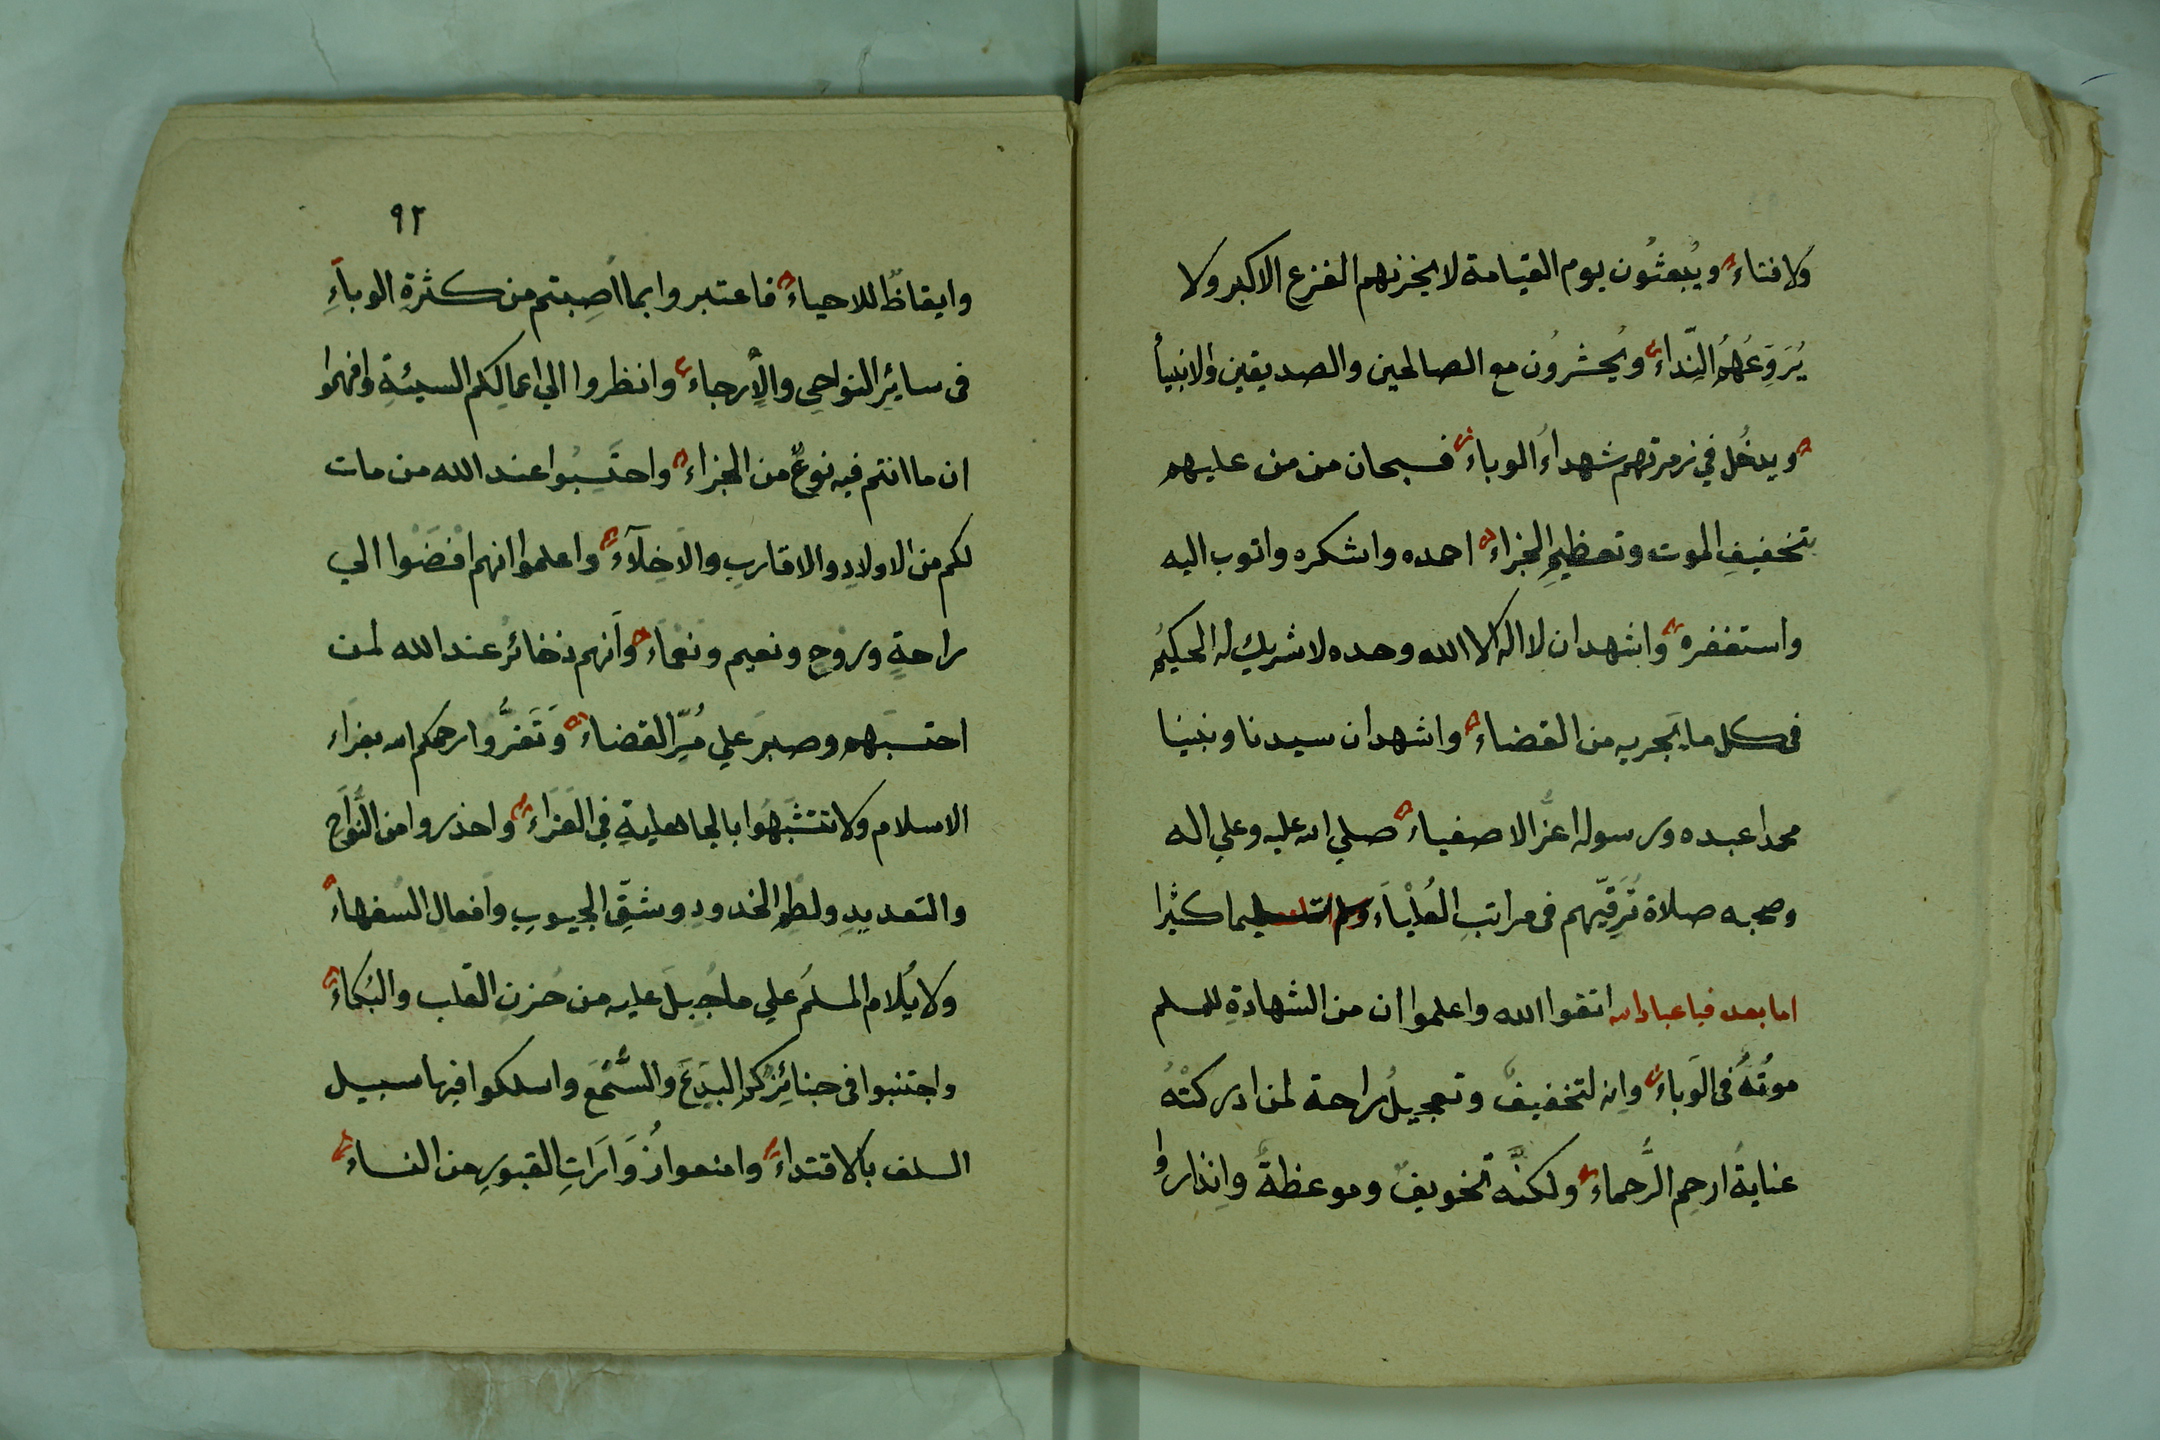 ولا فناء ويُبعثُون يوم القيامة لا يحزنهم الفزع الاكبر ولا
يُرَوِّعُهُم النِّداء ويُحشرُون مع الصالحين والصديقين والانبيأ
ويدخُل في زمرتهم شهداءُ الوباء فسبحان من من عليهم
بتخفيفِ الموت وتعظيمِ الجزاء احمده واشكره واتوب اليه
واستغفره واشهد ان لا اله الا الله وحده لا شريك له الحكيمُ
فى كل ما يَجريه من القضاء واشهد ان سيدنا ونبينا
محمدا عبده ورسوله اعزُّ الاصفياء صلي الله عليه وعلي اله
وصحبه صلاة تُرَقِّيهم فى مراتبِ العُلْيَاءِ وسلم تسليما كثيرا
اما بعد فيا عباد الله اتقوا الله واعلموا ان من الشهادةِ للمسلم
موتُهُ فى الوَباء وانه لتخفيفٌ وتعجيلُ راحة لمن ادركتْهُ
عنايةُ ارحمِ الرُّحماء ولكنَّه تخويفٌ وموعظةٌ وانذار وا
٩٢
وايقاظٌ للاحياء فاعتبروا بما اُصِبتم من كثرةِ الوباَءِ
فى سائِرِ النواحِى والأرجاء وانظروا الي اعمالِكم السيئةِ وافهموا
ان ما انتم فيه نوعٌ من الجزاء واحتَسِبُوا عند الله من مات
لكم من الاولادِ والاقاربِ والاَخِلآءِ واعلموا انهم افْضَوْا الي
راحةٍ وروْحٍ ونعيم ونَعْمَاءَ وأنهم ذخائرُ عند الله لمن
احتسبَهم وصبرَ علي مُرِّ القضاء وَتَعَزُّوا رحمكم الله بعزَاء
الاسلام ولا تتشَبَّهُوا بالجاهليةِ فى العَزَاء واحذروا من النُّوَاح
والتعديدِ ولطْمِ الخدودِ وشقِّ الجيوبِ وافعالِ السُفهاء
ولا يُلام المسلمُ علي ما جُبِلَ عليه من حُزنِ القلب والبُكاءِ
واجتنبوا فى جنائِزِكم البِدَعَ والسُّمْعَ واسلكوا فيها سبيل
السلف بالاقتداء وامنعوا زُوَّارَاتِ القبورِ من النساء